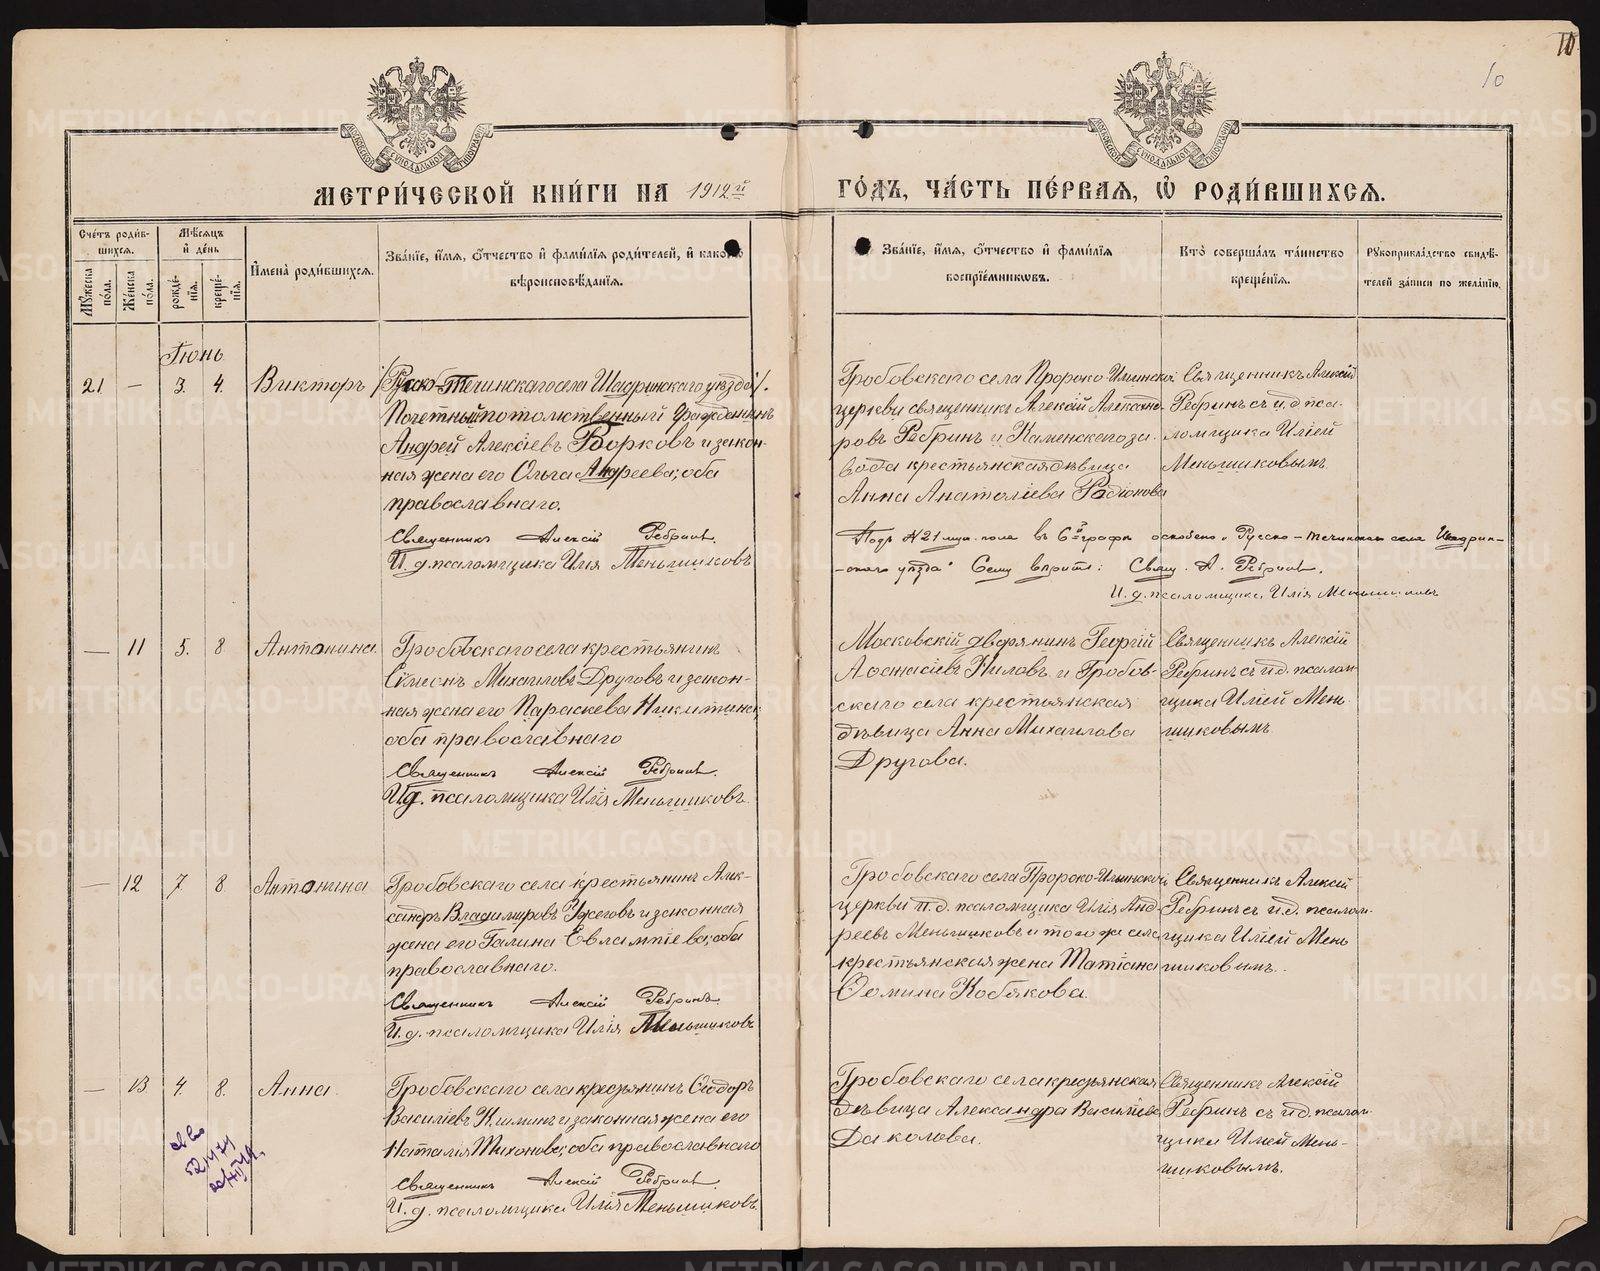 10
10
МОСКОВСКОЙ СѴНОДАЛЬНОЙ ТИПОГРАФІИ
МОСКОВСКОЙ СѴНОДАЛЬНОЙ ТИПОГРАФІИ
МЕТРИ́ЧЕСКОЙ КНИ́ГИ НА 1912й
ГО́ДЪ, ЧА́СТЬ ПЕ́РВАЯ, Ѽ РОДИ́ВШИХСЯ.
Сче́тъ роди́в-
шихся.
Мѣ́сяцъ
и҆ де́нь
Мꙋ́жеска
по́ла.
Же́нска
по́ла.
рожде́-
нїѧ.
креще́-
нїѧ.
И҆мена̀ роди́вшихся.
Зва́нїе, и҆́мя, ѻ҆́тчество и҆ фами́лїя роди́телей, и҆ како́гѡ
вѣроисповѣ́данїя.
Зва́нїе, и҆́мя, ѻ҆́тчество и҆ фами́лїя
воспрїе́мникωвъ.
Кто̀ соверша́лъ та́инство
креще́нїя.
Рꙋкоприкла́дство свидѣ́-
телей за́писи по жела́нїю.
Іюнь
21 — 3. 4. Викторъ
/Русско-Теченскаго села Шадринскаго уѣзда/.
Почетный потомственный Гражданинъ
Андрей Алексіевъ Борковъ и закон-
ная жена его Ольга Андреева; оба
православнаго.
Священникъ Алексій Ребринъ.
И. д. псаломщика Илія Меньшиковъ
Гробовскаго села Пророко-Илинской
церкви священникъ Алексій Александ-
ровъ Ребринъ и Каменскаго за-
вода крестьянская дѣвица
Анна Анатоліева Радіонова
Священникъ Алексій
Ребринъ съ и.д. пса-
ломщика Иліей
Меньшиковымъ.
Подъ №21 муж. пола въ 6й графѣ оскоблено „Русско-Теченскаго села Шадрин-
-скаго уѣзда" Сему вѣрить: Свящ. А. Ребринъ.
И. д. псаломщика Илія Меньшиковъ
— 11 5. 8 Антонина
Гробовскаго села крестьянинъ
Сѷмеонъ Михаиловъ Друговъ и закон-
ная жена его Параскева Никитина
оба православнаго
Священникъ Алексій Ребринъ.
И.д. псаломщика Илія Меньшиковъ.
Московскій дворянинъ Георгій
Аѳанасіевъ Ниловъ и Гробов-
скаго села крестьянская
дѣвица Анна Михаилова
Другова.
Священникъ Алексій
Ребринъ съ и.д. псалом-
щика Иліей Мень-
шиковымъ
— 12 7 8 Антонина
Гробовскаго села крестьянинъ Алек-
сандръ Владиміровъ Ужеговъ и законная
жена его Галина Евлампіева; оба
православнаго.
Священникъ Алексій Ребринъ
И. д. псаломщика Илія Меньшиковъ
Гробовскаго села Пророко-Илинской
церкви и.д. псаломщика Илія Анд-
реевъ Меньшиковъ и того же села
крестьянская жена Татіана
Ѳомина Кобякова.
Священникъ Алексій
Ребринъ съ и.д. псалом-
щика Иліей Мень
шиковымъ.
— 13 4. 8. Анна
Гробовскаго села крестьянинъ Ѳеодоръ
Василіевъ Климинъ и законная жена его
Наталія Тихонова; оба православнаго
Священникъ Алексій Ребринъ.
И. д. псаломщика Илія Меньшиковъ.
Гробовскаго села крестьянская
дѣвица Александра Василіева
Даколова.
Священникъ Алексій
Ребринъ съ и.д. псалом-
щика Иліей Мень-
шиковымъ.
METRIKI.GASO-URAL.RU